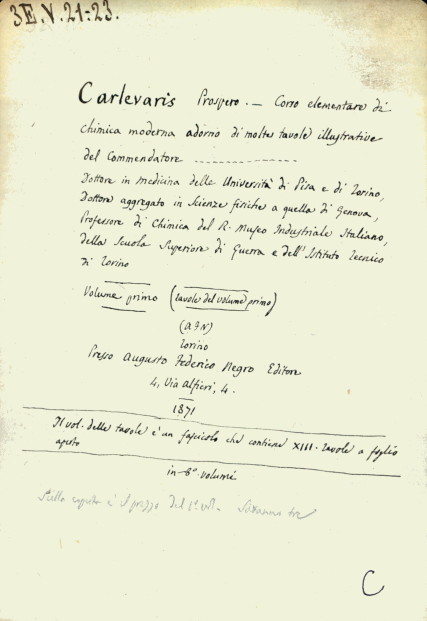 3E.V.21-23.
Carlevaris Prospero. — Corso elementare di
Chimica moderna adorno di molte tavole illustrative
del Commendatore ------------------
Dottore in medicina delle Università di Pisa e di Torino,
Dottore aggregato in Scienze fisiche a quella di Genova,
Professore di Chimica del R. Museo Industriale Italiano,
della Scuola Superiore di Guerra e dell'Istituto Tecnico
di Torino
Volume primo (tavole del volume primo)
(A F N)
Torino
Presso Augusto Federico Negro Editore
4, Via Alfieri, 4.
1871
Il vol. delle tavole è un fascicolo che contiene XIII. tavole a foglio
aperto
in-8° volumi
Sulla coperta è il prezzo del 1° vol.
C